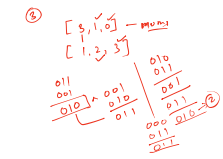 ③
[3,1,0] - mom1
[1,2,3]
011
001
010
001
010
011
010
011
001
011
000 010 → ②
011
011